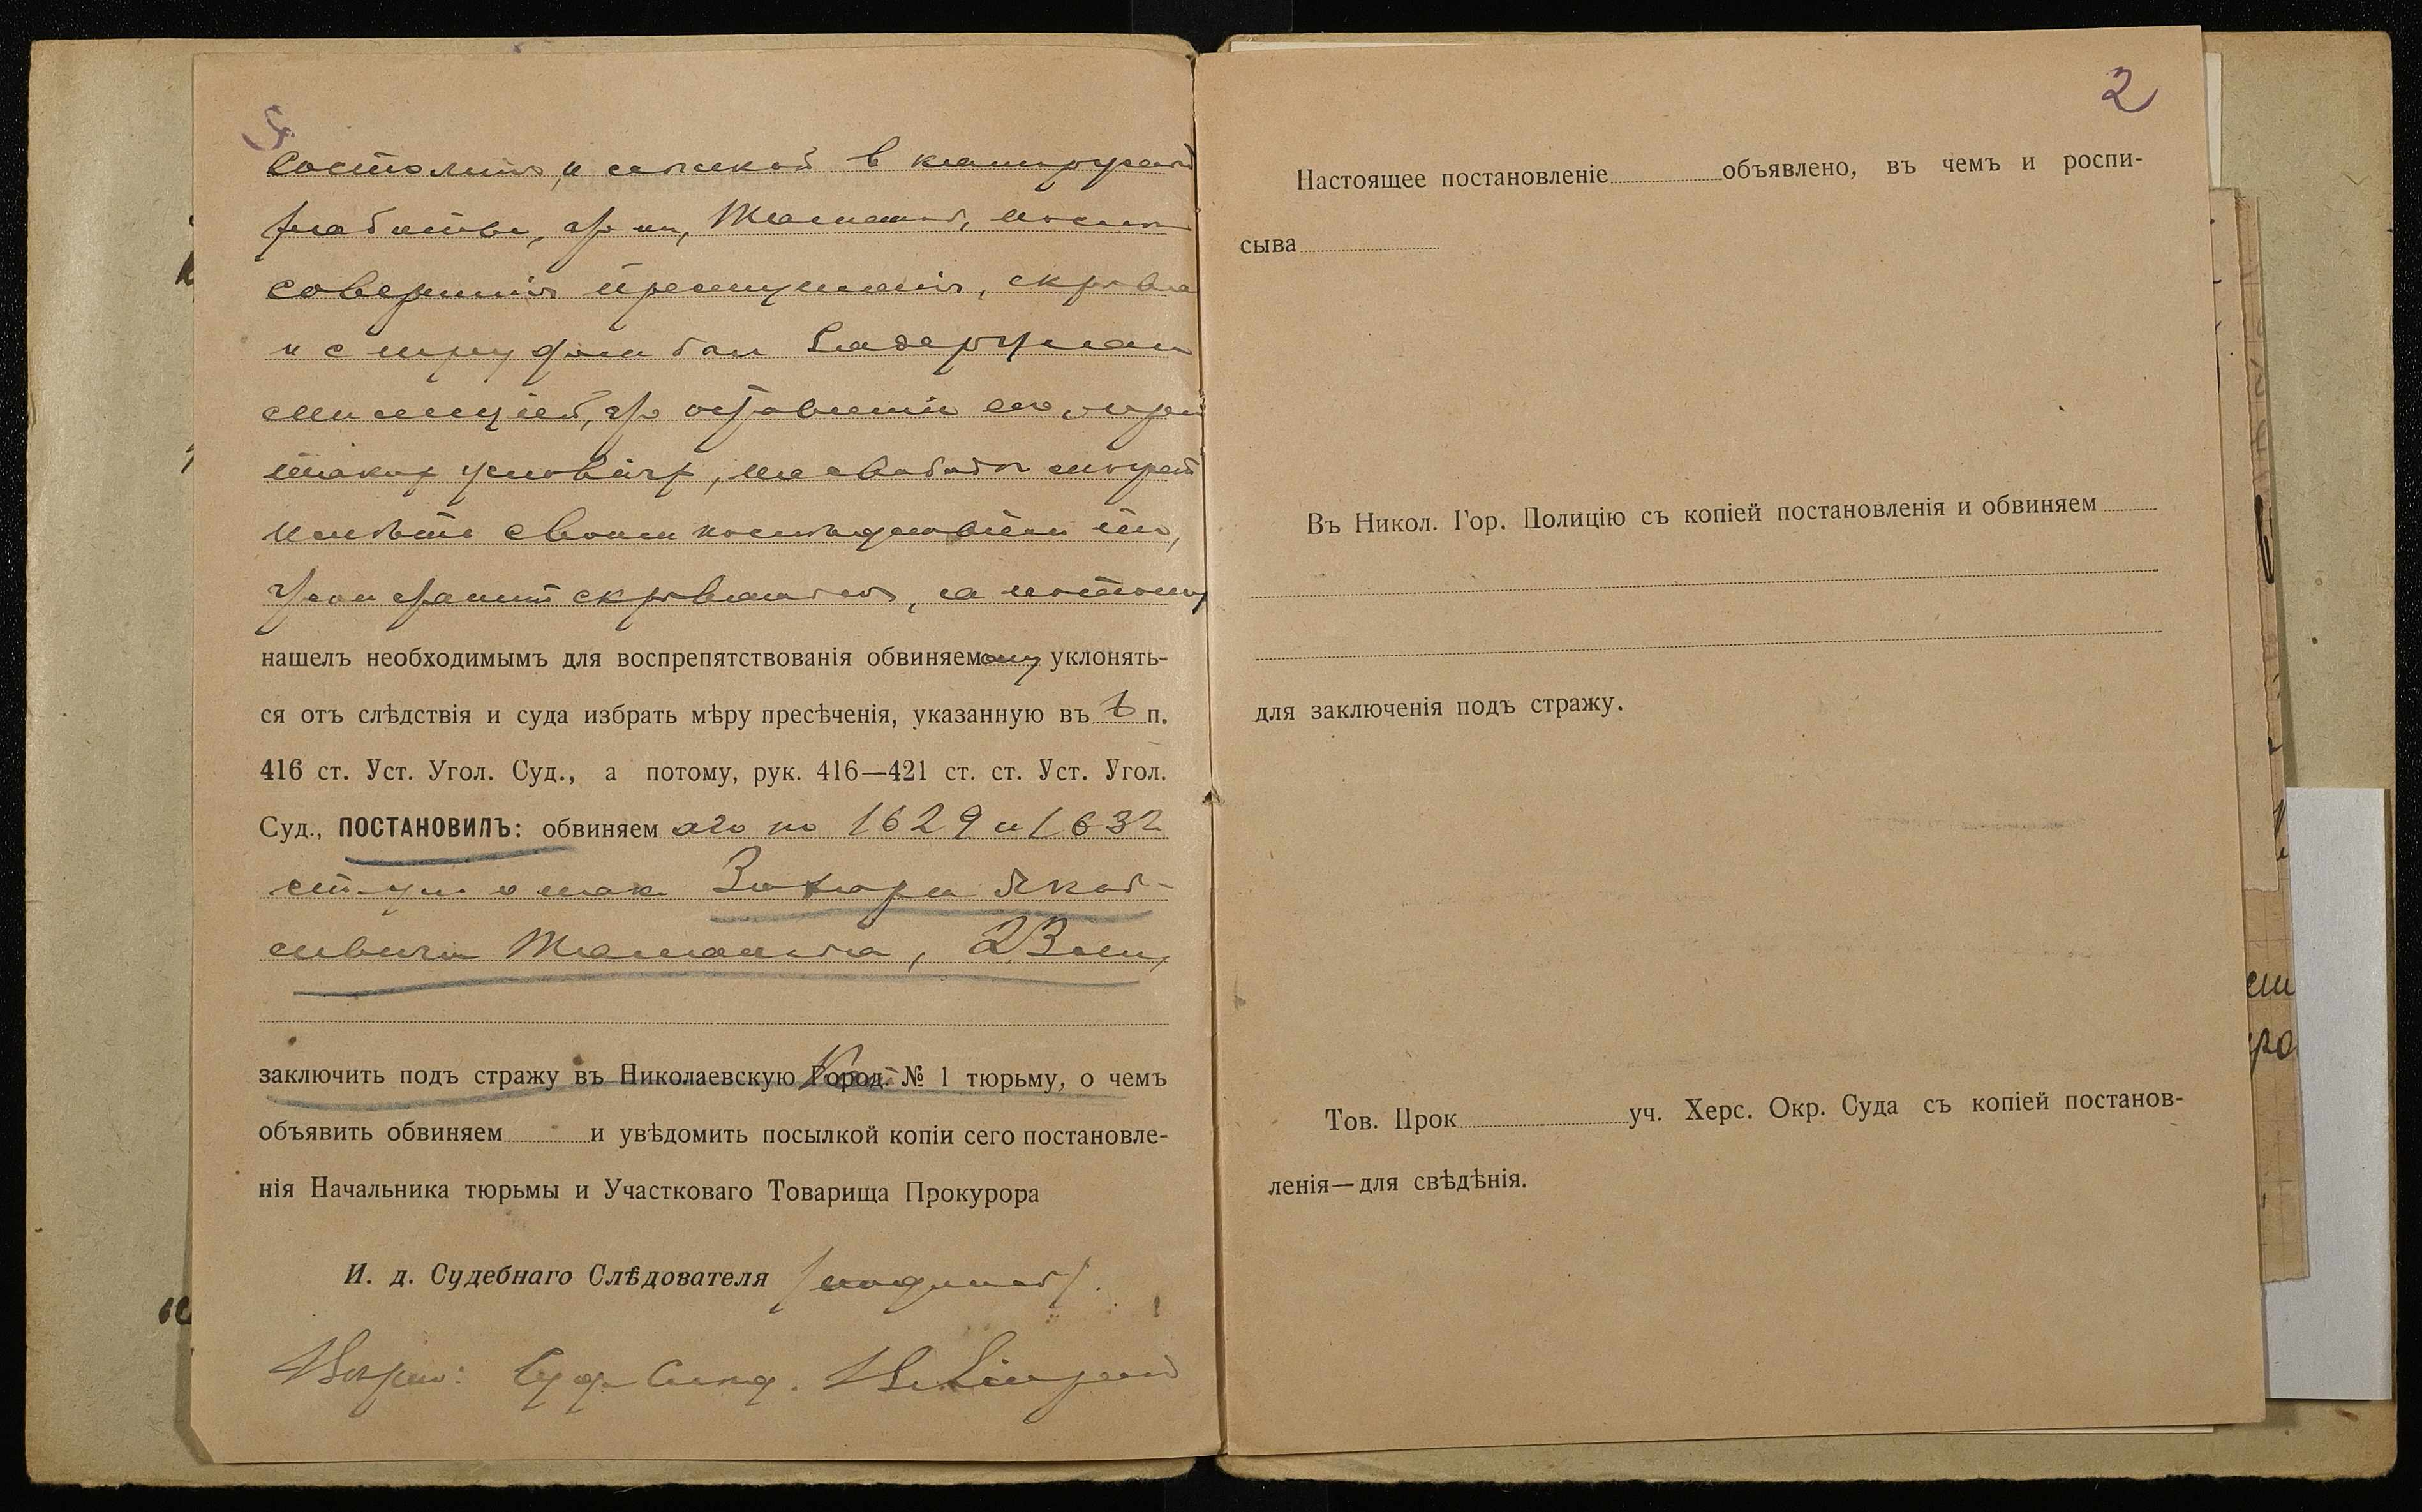 2
состоянія, и ссылкой в каторжныя
работы, что он,
совершив преступленіе, скрылся
и с трудом был задержан
что оставленіе его, при
таких условіях, на свободе может
иметь своим последствіем то,
что он может скрываться, а потому
нашелъ необходимымъ для воспрепятствованія обвиняемому уклонять-
ся отъ слѣдствія и суда избрать мѣру пресѣченія, указанную въ п.
416 ст. Уст. Угол. Суд., а потому, рук. 416—421 ст. ст. Уст. Угол.
Суд., ПОСТАНОВИЛЪ: обвиняемаго по 1629 и 1632
ст. ул. о нак.
23 лет,
заключить подъ стражу въ Николаевскую Город. № 1 тюрьму, о чемъ
объявить обвиняем и увѣдомить посылкой копіи сего постановле-
нія Начальника тюрьмы и Участковаго Товарища Прокурора
И. д. Судебнаго Слѣдователя /подписал/.
Верно: Суд. След.
Настоящее постановленіе объявлено, въ чемъ и роспи-
сыва
Въ Никол. Гор. Полицію съ копіей постановленія и обвиняем
для заключенія подъ стражу.
Тов. Прок уч. Херс. Окр. Суда съ копіей постанов-
ленія—для свѣдѣнія.